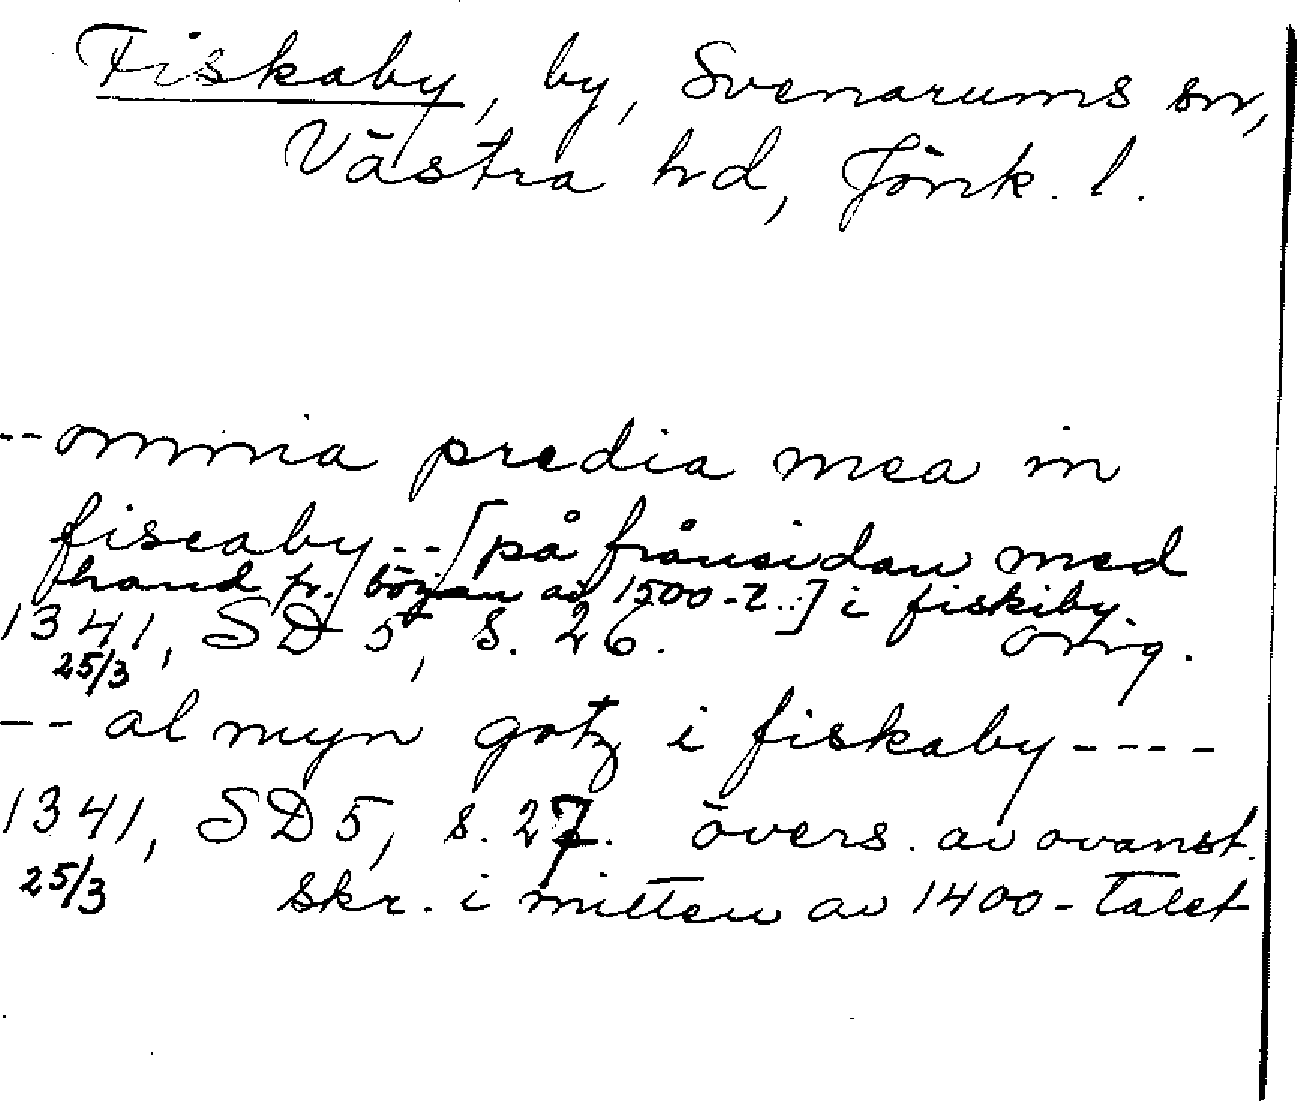 Fiskaby, by, Svenarums sn,
Västra hd, Jönk. l.
-- omnia predia mea in
fiscaby -- [på frånsidan med
hand fr. början av 1500-t..] i fiskiby.
1341, SD 5, s. 26. Orig.
25/3
-- al myn gotz i fiskaby ----
1341, SD 5, s. 27. övers. av ovanst.
25/3 skr. i mitten av 1400-talet